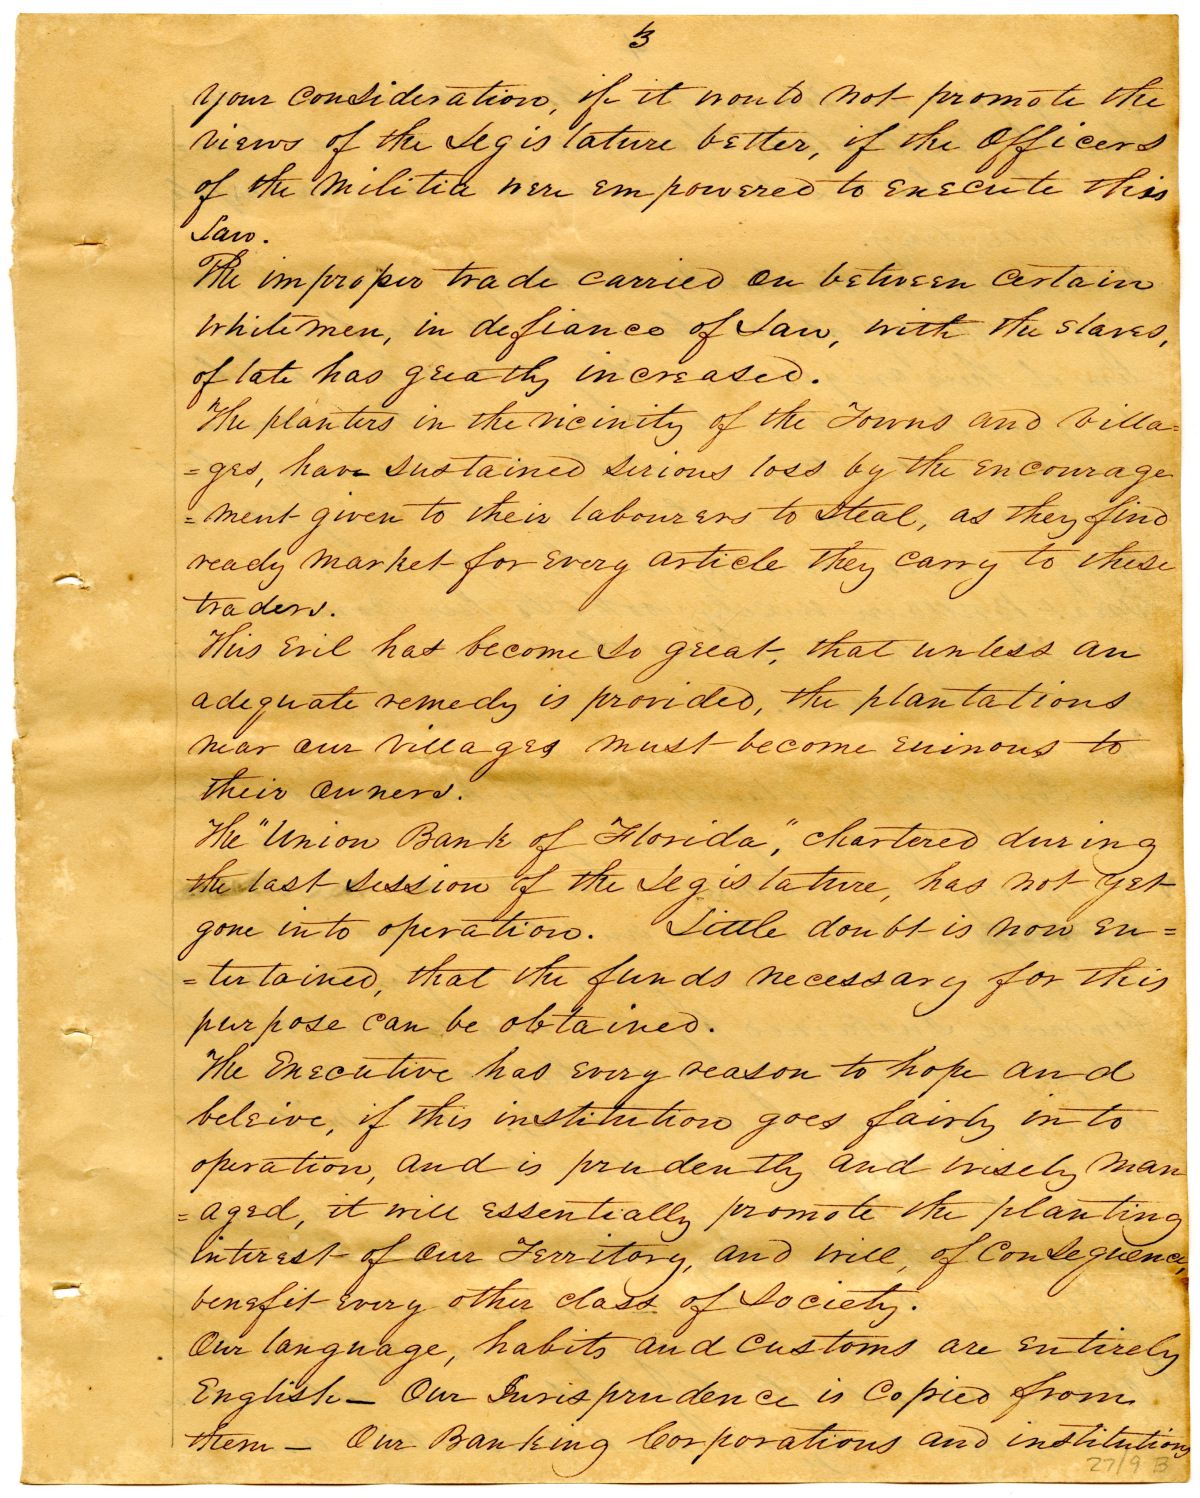 3
your consideration, if it would not promote the
views of the Legislature better, if the Officers
of the Militia were empowered to execute this
Law.
The improper trade carried on between certain
whitemen, in defiance of Law, with the slaves,
of late has greatly increased.
The planters in the vicinity of the Towns and Villa=
=ges, have sustained serious loss by the encourage
=ment given to their labourers to steal, as they find
ready market for every article they carry to these
traders.
This evil has become so great, that unless an
adequate remedy is provided, the plantations
near our villages must become ruinous to
their owners.
The "Union Bank of Florida", chartered during
the last session of the Legislature, has not yet
gone into operation. Little doubt is now en=
=tertained, that the funds necessary for this
purpose can be obtained.
The Executive has every reason to hope and
beleive, if this institution goes fairly into
operation, and is prudently and wisely man
=aged, it will essentially promote the planting
interest of our Territory, and will, of consequence,
benefit every other class of society.
Our language, habits and customs are entirely
English — Our Jurisprudence is copied from
them — Our Banking Corporations and institutions
27/9 B